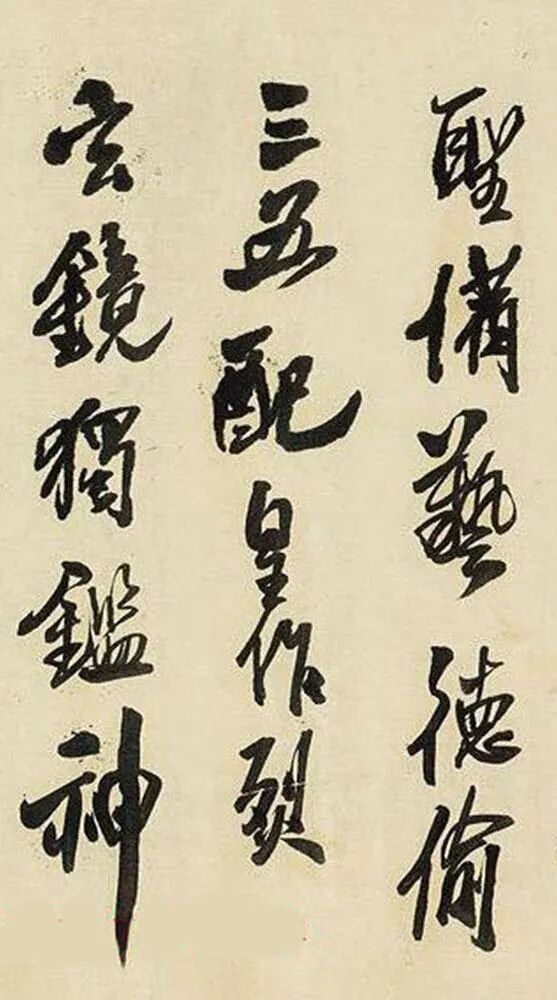 聖備藝德偷
三五配皇作烈
玄鏡獨鑑神